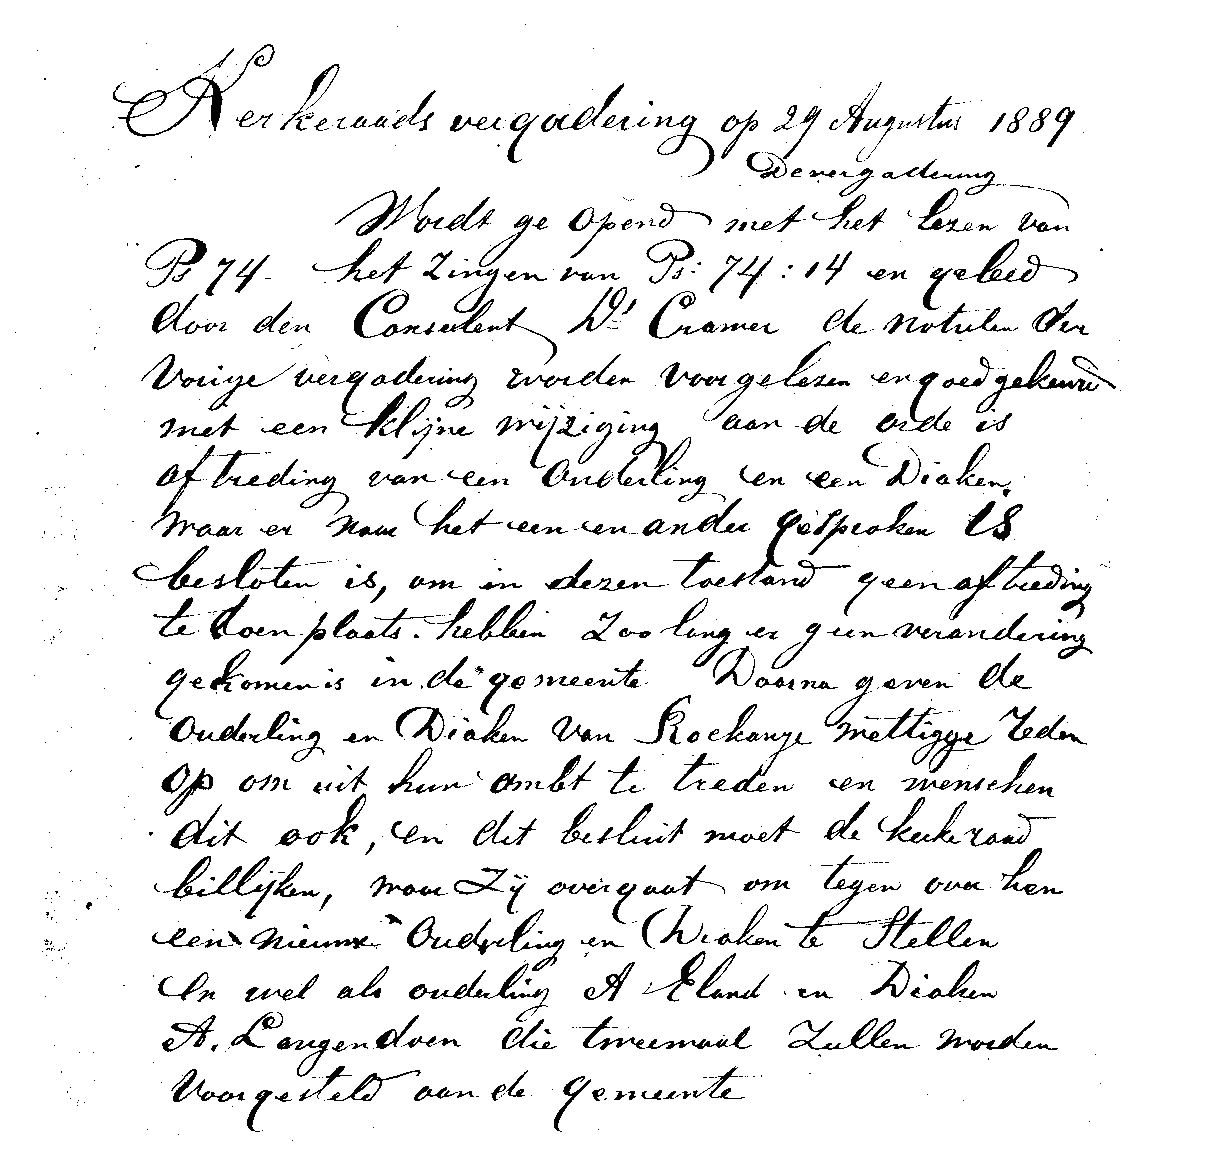 Kerkeraads vergadering op 29 Augustus 1889
De vergadering
Wordt ge opend met het lezen van
Ps 74 - het zingen van Ps: 74 : 14 en geleid
door den Consulent Ds Cramer de notulen der
Vorige vergadering worden voorgelezen en goedgekeurd
met een klijne wijziging aan de orde is
aftreding van een Ouderling en een Diaken.
maar er naar het een en ander gesproken is
besloten is, om in dezen toestand geen aftreding
te doen plaats. hebben Zoo lang er geen verandering
gekomen is in de gemeente Daarna geven de
Ouderling en Diaken van Rockanje wettigge reden
op om uit hun ambt te treden en wenschen
dit ook, en dit besluit moet de kerkeraad
billijken, maar Zij overgaat om tegen over hen
een nieuwe Ouderling en Diaken te Stellen
En wel als ouderling A Eland en Diaken
A. Langendoen die tweemaal Zullen worden
Voorgesteld aan de gemeente